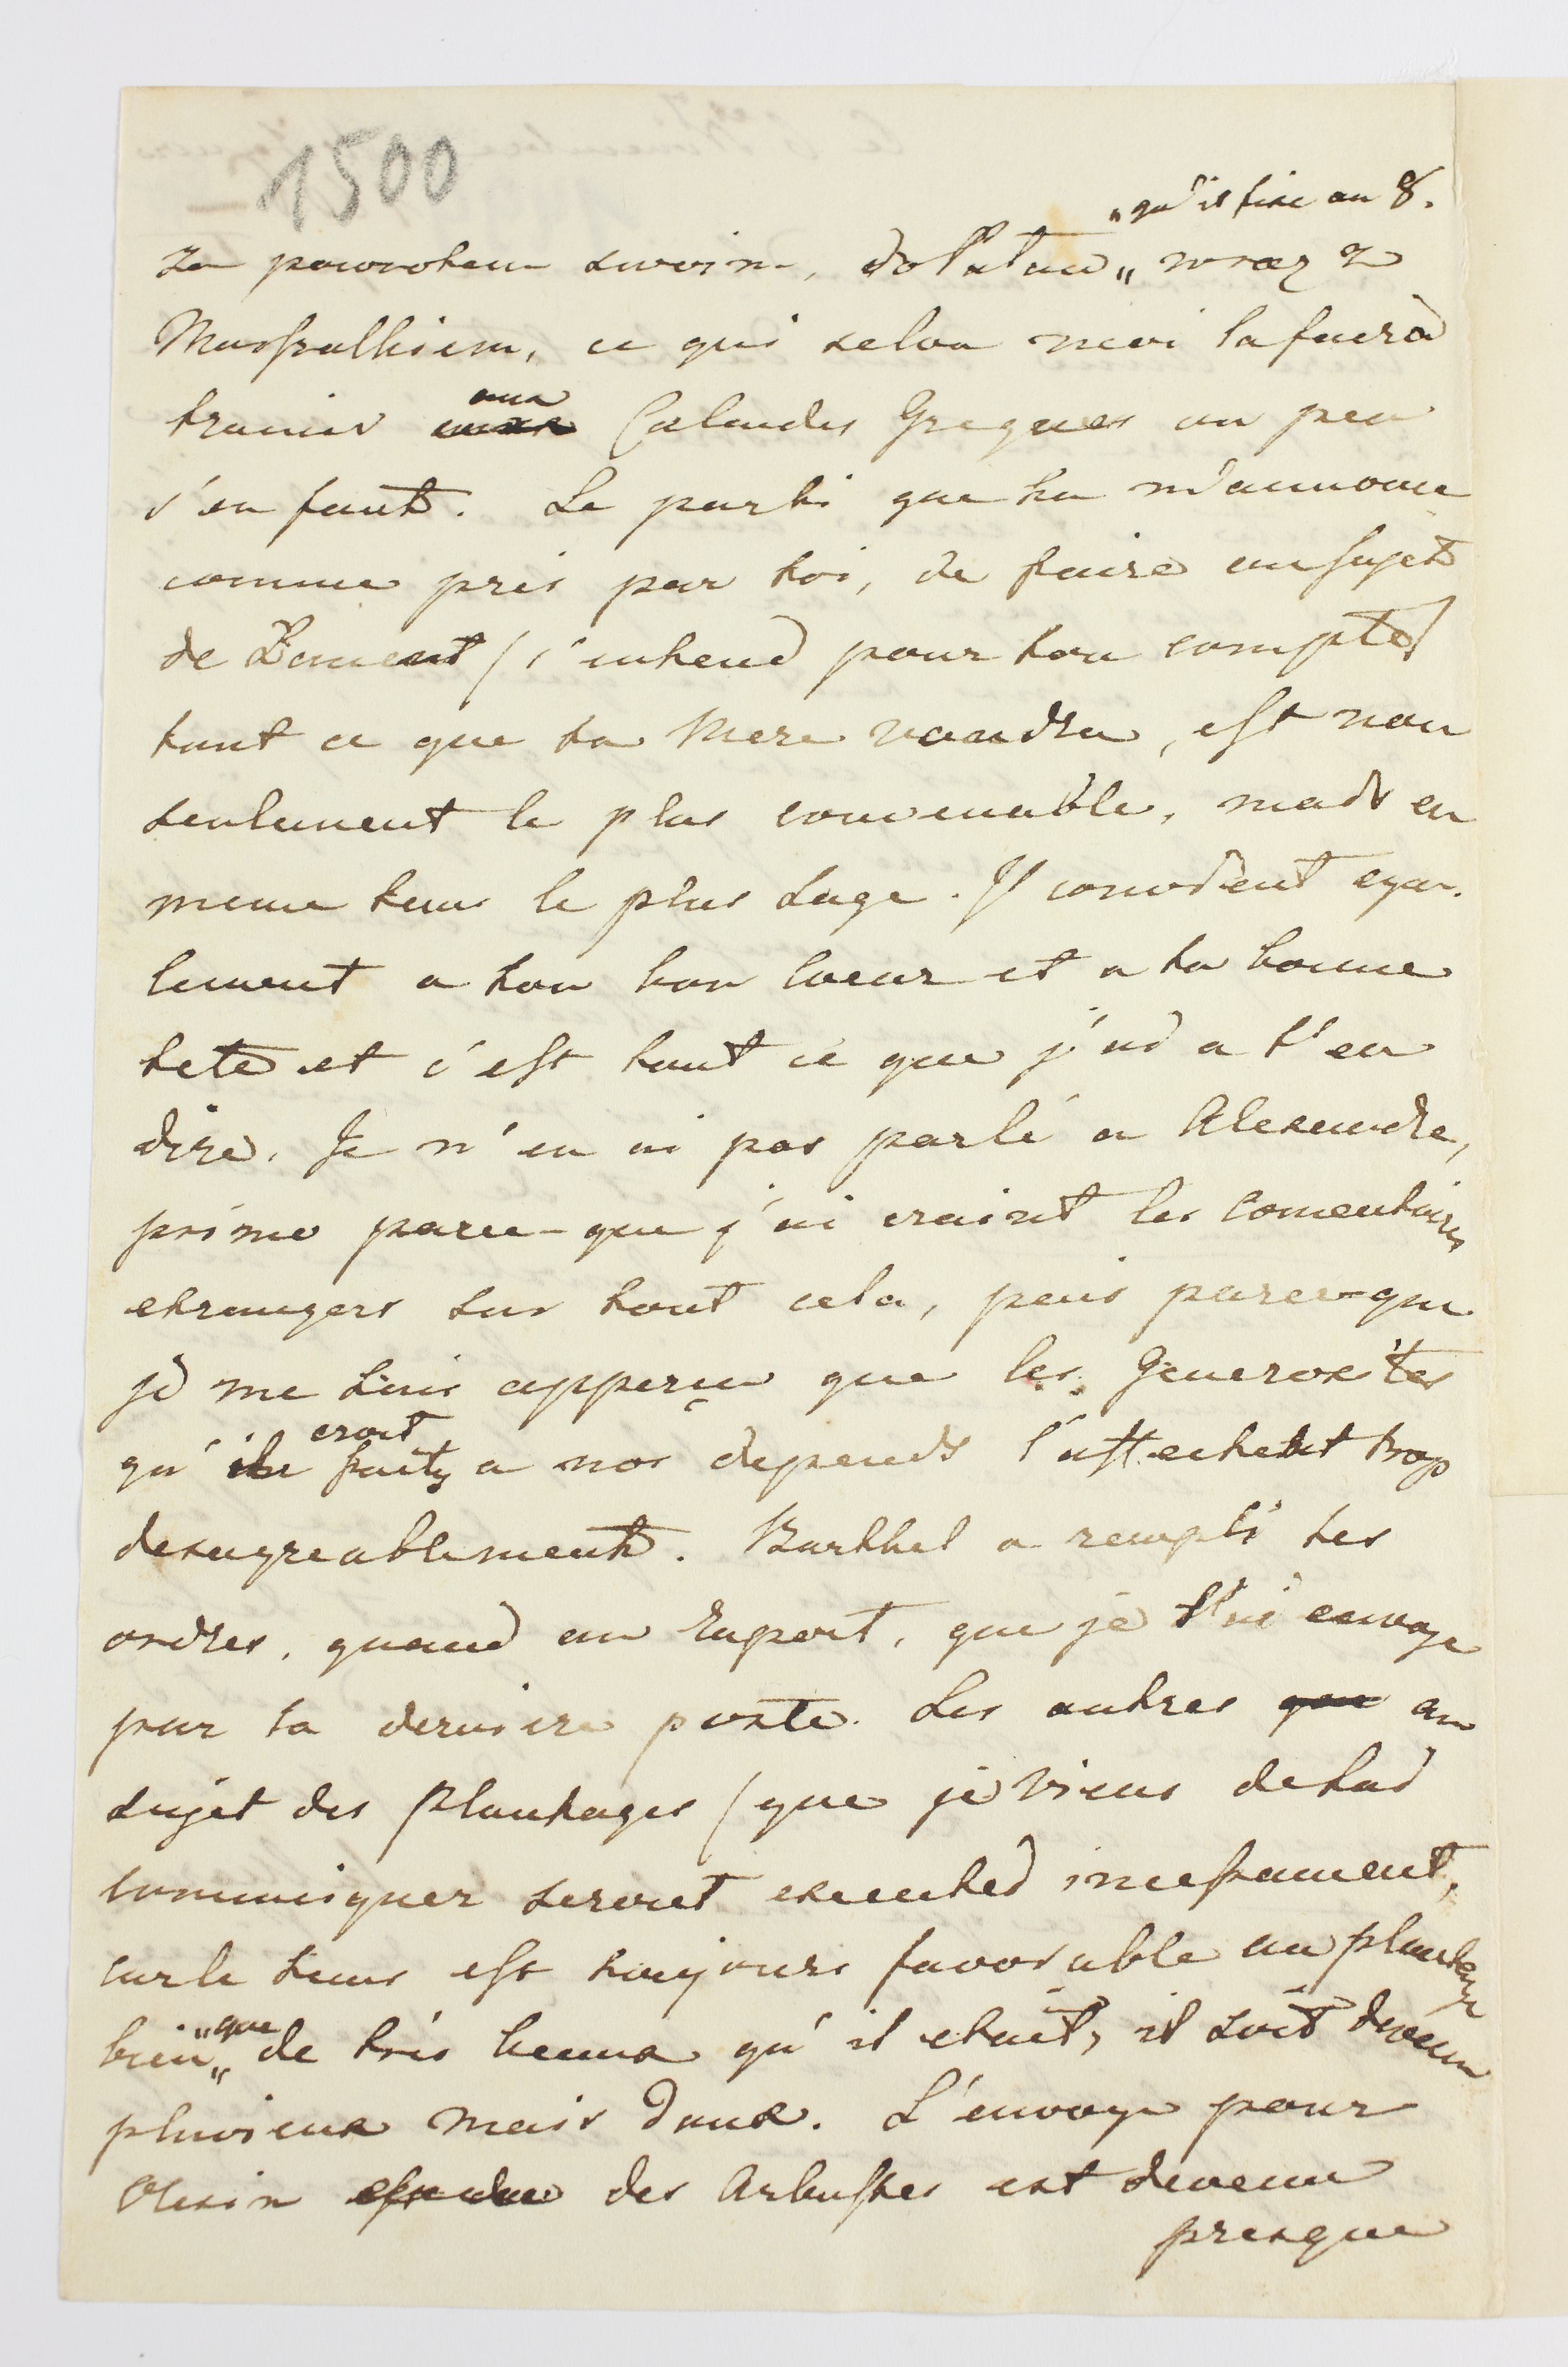 1500
"qu'il fixe au 8.
za powrotem swoim, do "wraz z
Marszalkiem, ce qui selon moi la fuera
trainer aux Calendes Greques un peu
s'en faut. Le parti que tu m'annonce
comme pris par toi, de faire au sujet
de (s'entend pour ton compte)
tout ce que ta Mere voudra, est non
seulement le plus convenable, mais en
meme tems le plus sage. Il convient ega-
lement a ton bon Coeur et a ta bonne
tete et c'est tout ce que j'ai a t'en
dire. Je n'en ai pas parlé a Alexandre,
primo parce-que j'ai craint les Comentaires
etrangers sur tout cela, puis parce-que
je me suis apperçu que les Generosites
qu'il croit faites a nos depends l'affectent trop
desagreablement. Barthel a rempli tes
ordres, quand au Raport, que je t'ai envoye
par la derniere poste. Les autres que au
sujet des Plantages (que je viens de lui
communiquer seront executes incessament,
car le tems est toujours favorable au plantage
bien "que de très beaux qu'il etait, il soit devenu
pluvieux mais doux. L'envoye pour
Olesin des Arbustes est devenu
presque